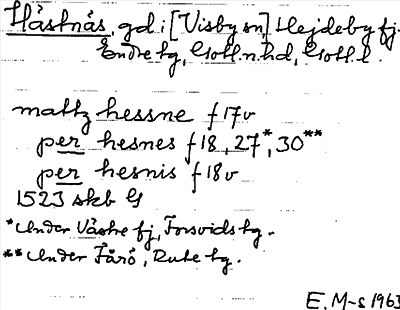 Hästnäs, gd i [Visby sn,] Hejdeby fj.
Endre tg, Gotl. n. hd, Gotl. l.
mattz hessne f 17v
per hesnes f 18, 27*, 30**
per hesnis f 18v
1523 skb G
*Under Västre fj, Forsvids tg.
**Under Fårö, Rute tg.
E. M-s 1963